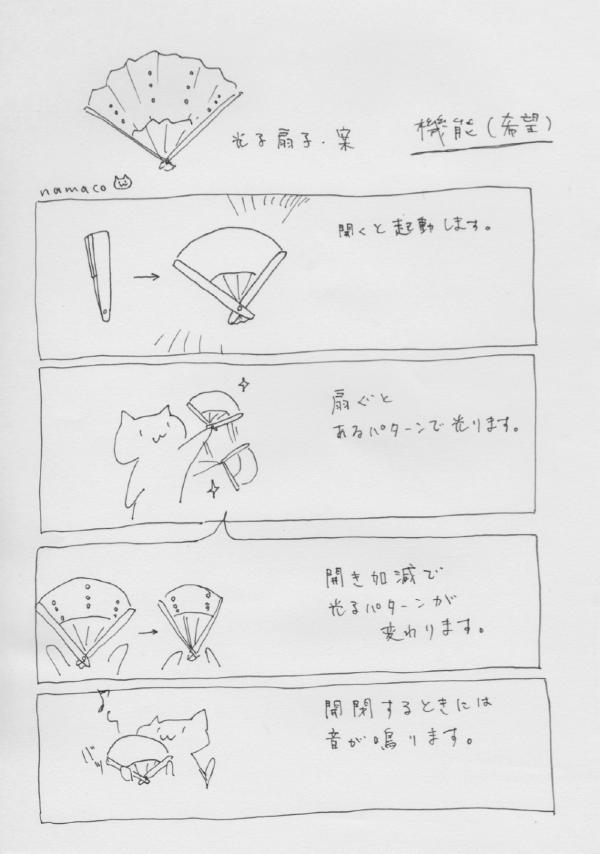 光子扇子・案
機能(希望)
namaco
開くと起動します。
扇ぐと
あるパターンで光ります。
開き加減で
光るパターンが
変わります。
開閉するときには
音が鳴ります。
バッ